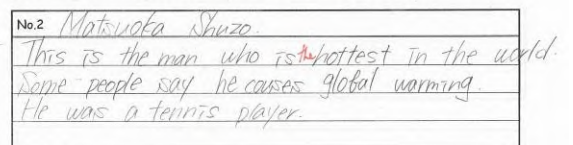 No.2 Matsuoka Shuzo.
This is the man who is the hottest in the world.
Some people say he couses global warming.
He was a tennis player.